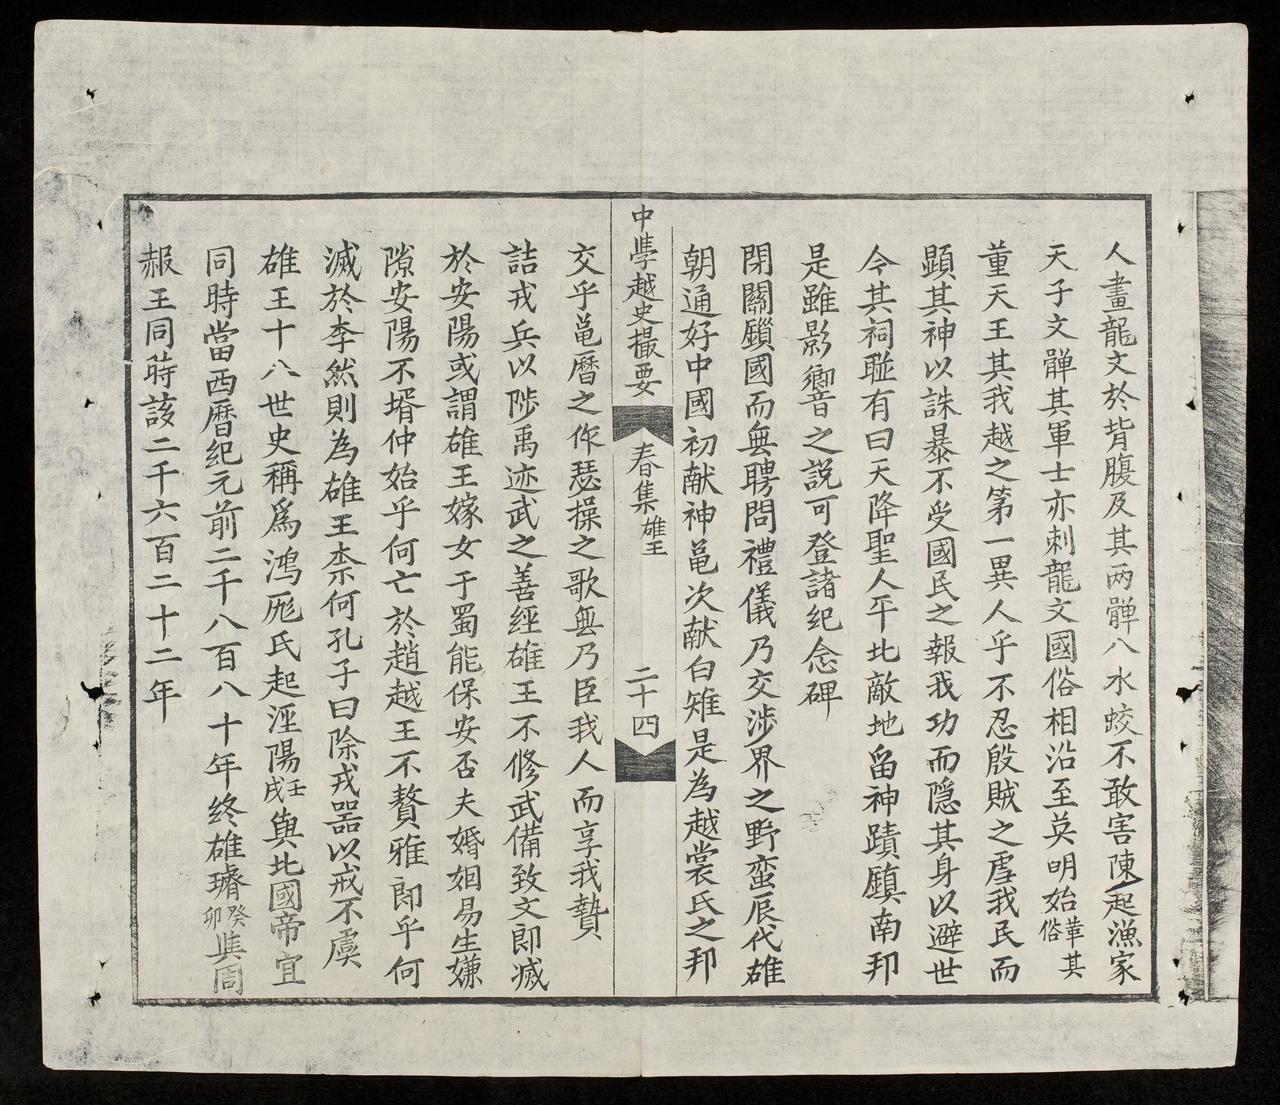 人畫龍文於背腹及其两髀八水蛟不敢害陳起漁家
天子文髀其軍士亦刺龍文國俗相沿至英明始革其俗
董天王其我越之第一異人乎不忍殷賊之虐我民而
顕其神以誅暴不受國民之報我功而隠其身以避世
今其祠聯有曰天降聖人平北敵地留神蹟鎮南邦
是雖影響之説可登諸紀念碑
閉關鎖國而無聘問禮儀乃交涉界之野蛮辰代雄
朝通好中國初献神黾次献白雉是為越裳氏之邦
中學越史撮要
春集雄王
二十四
交乎黾曆之作瑟操之歌無乃臣我人而享我贄
詰戎兵以陟禹迹武之善經雄王不修武備致文郎滅
於安陽或謂雄王嫁女于蜀能保安否夫婚姻易生嫌
隙安陽不壻仲始乎何亡於趙越王不贅雅郎乎何
滅於李然則為雄王柰何孔子曰除戎器以戒不虞
雄王十八世史稱為鴻厖氏起涇陽壬戌與北國帝宜
同時當西曆紀元前二千八百八十年終雄璿癸卯與周
赧王同時該二千六百二十二年